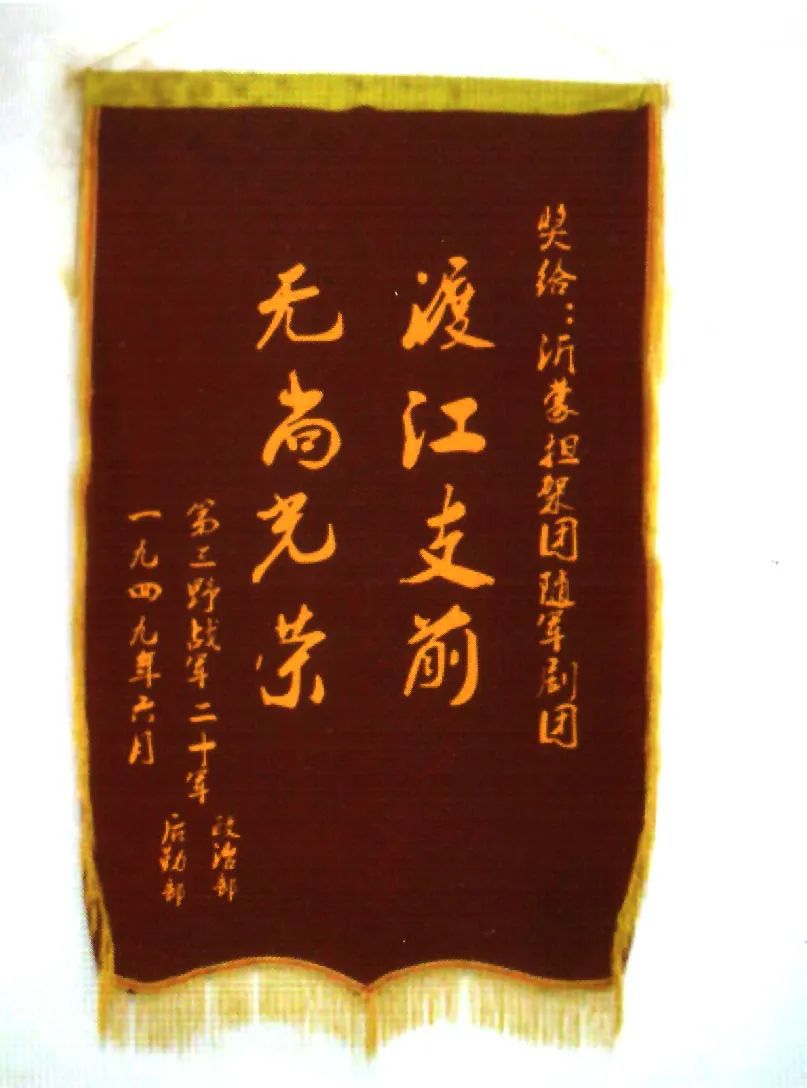 奖给：沂蒙担架团随军剧团
渡江支前
无尚光荣
第三野战军二十军
政治部
后勤部
一九四九年六月